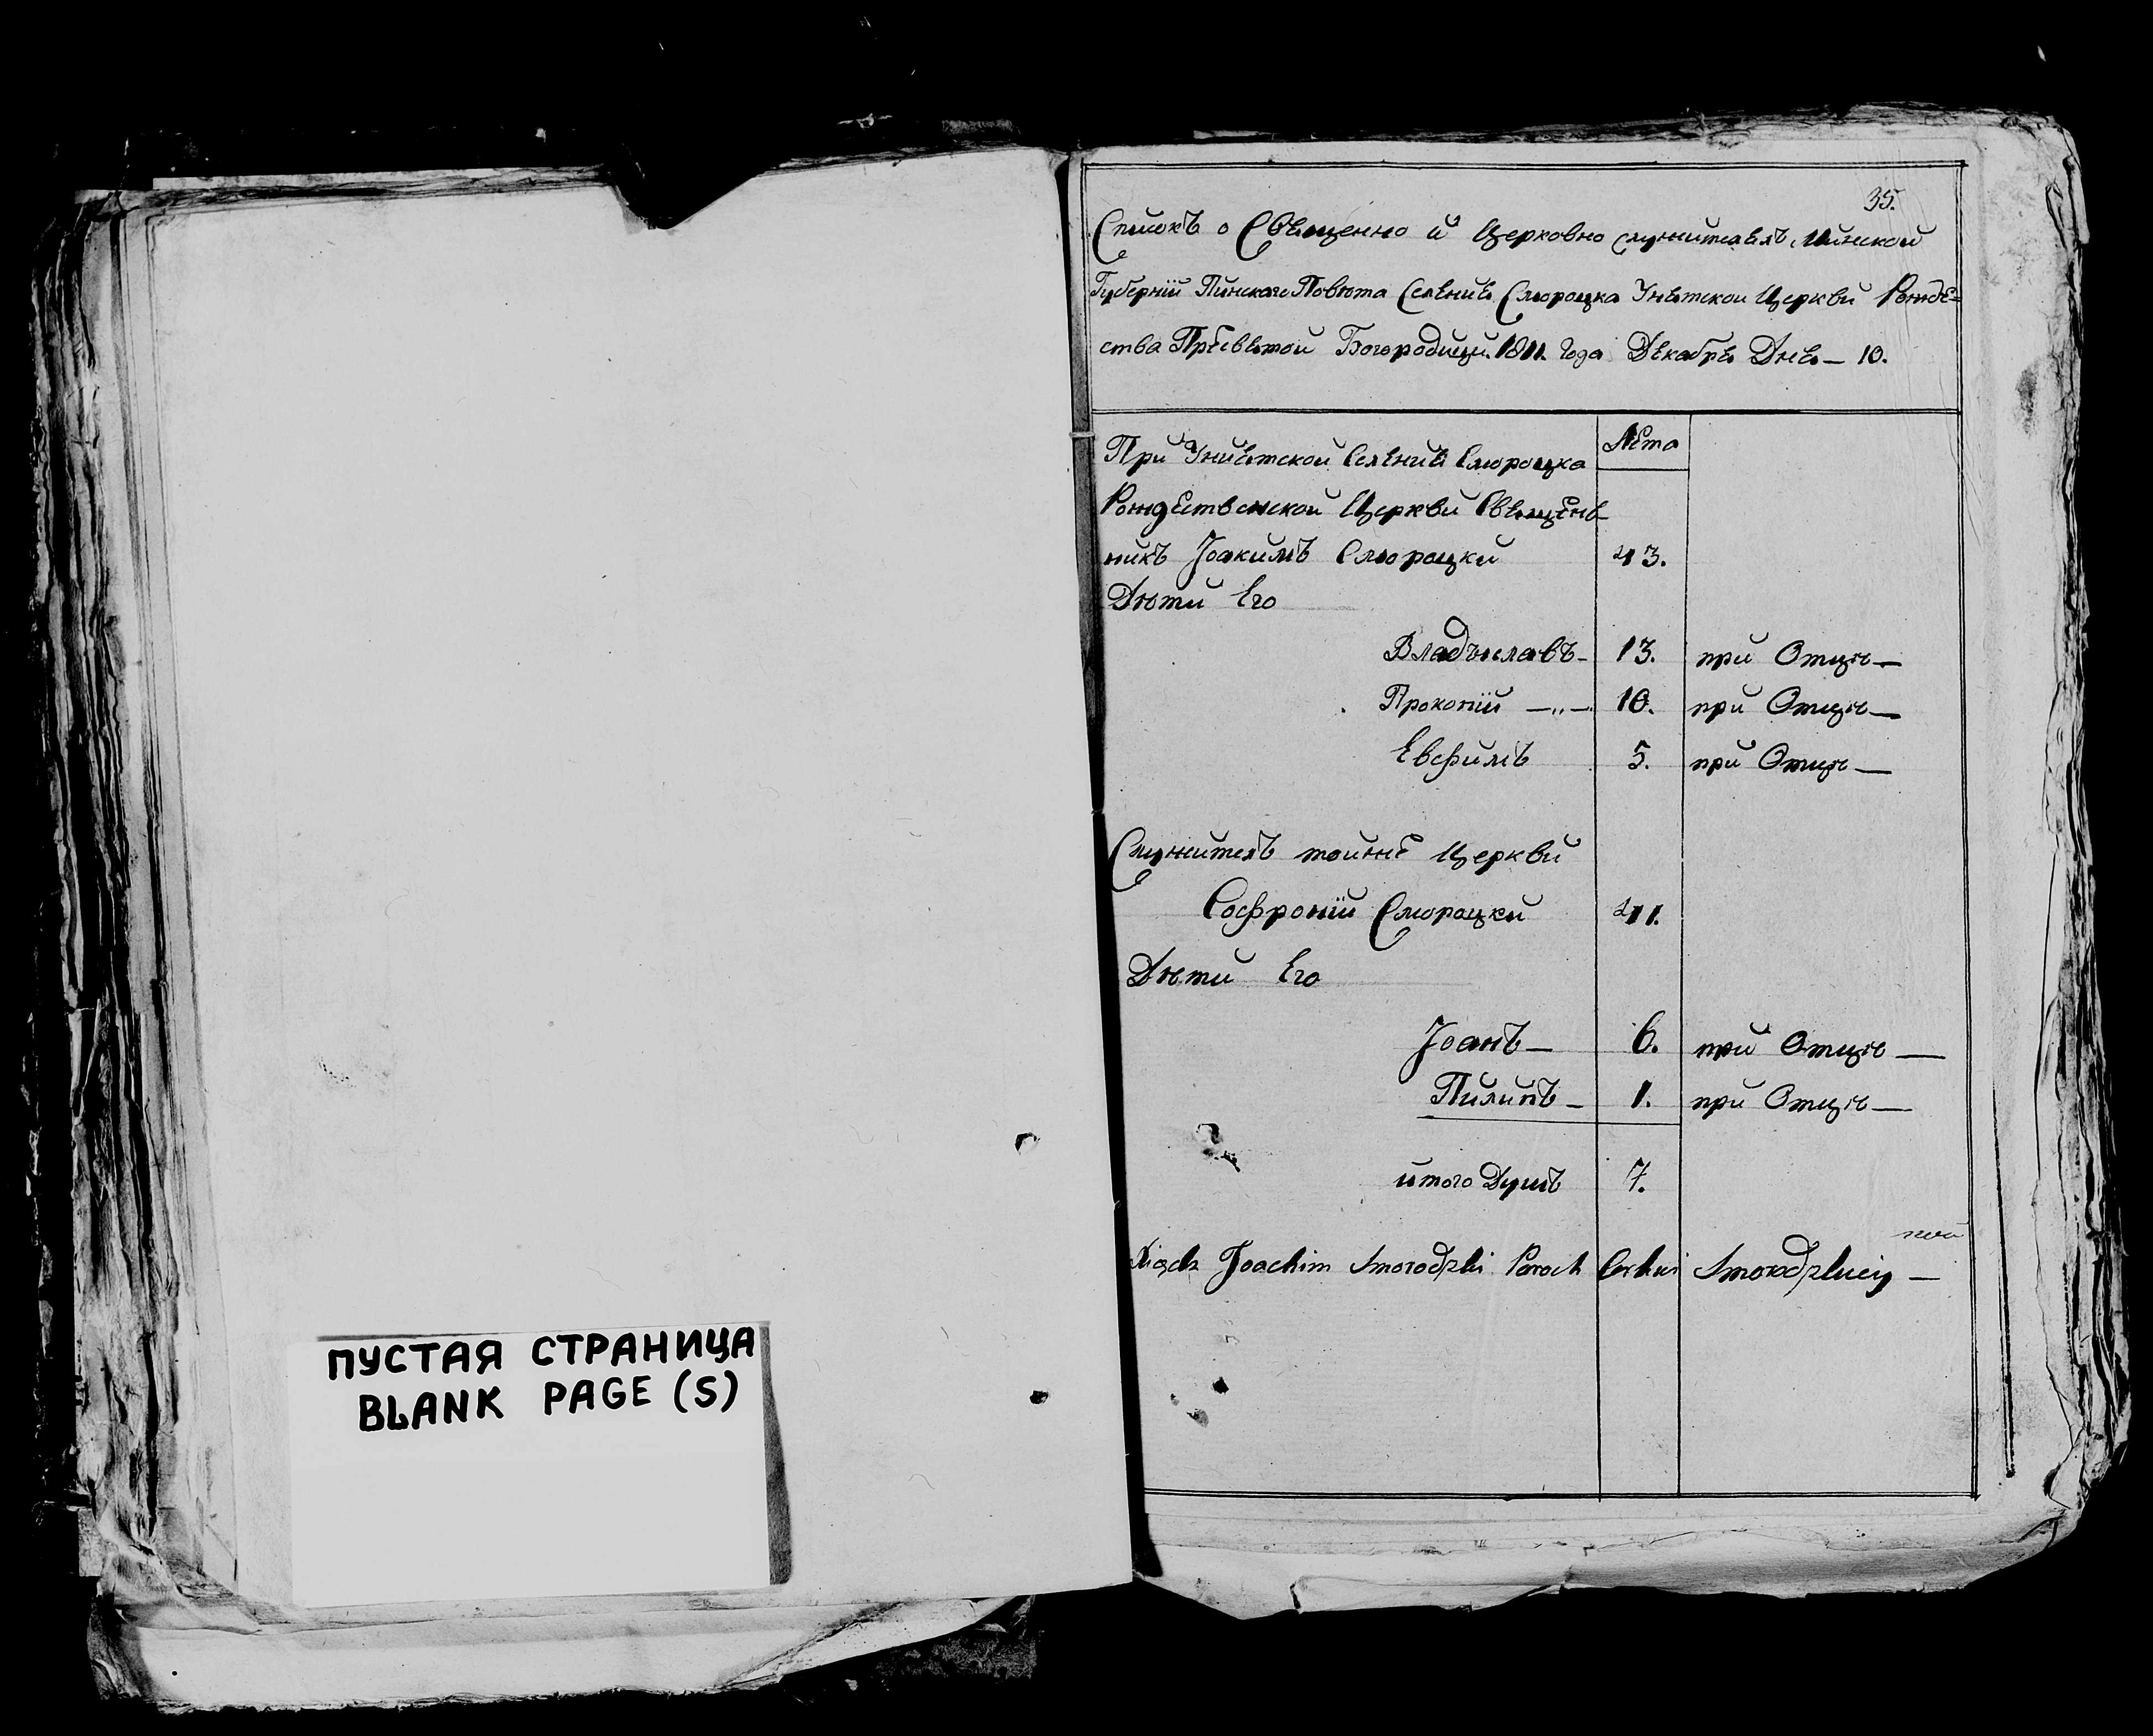 ПУСТАЯ СТРАНИЦА
BLANK PAGE (S)
35.
Списокъ о Свѧщенно и Церковно служителѧхъ, Минской
Губерніи Пинскаго Повѣта Селениѧ Смороцка Унѧтской Церкви Рожде-
ства Пресвѧтой Богородицы. 1811. Года Декабрѧ Днѧ — 10.
При Униѧтской Селениѧ Смороцка
Лета
Рождественской Церкви Свѧщен-
никъ Іоакимъ Смороцки 43.
Дѣти Его
Владыславъ — 13. при Отцѣ —
Прокопій —„— 10. при Отцѣ —
Евфимъ 5. при Отцѣ —
Служитель тойже Церкви
Софроній Смороцки 41.
Дѣти Его
Іоанъ — 6. при Отцѣ —
Пилипъ — 1. при Отцѣ —
итого Душъ 7.
Xiądz Joachim Smorodzki Paroch Cerkwi Smorodzkiey —